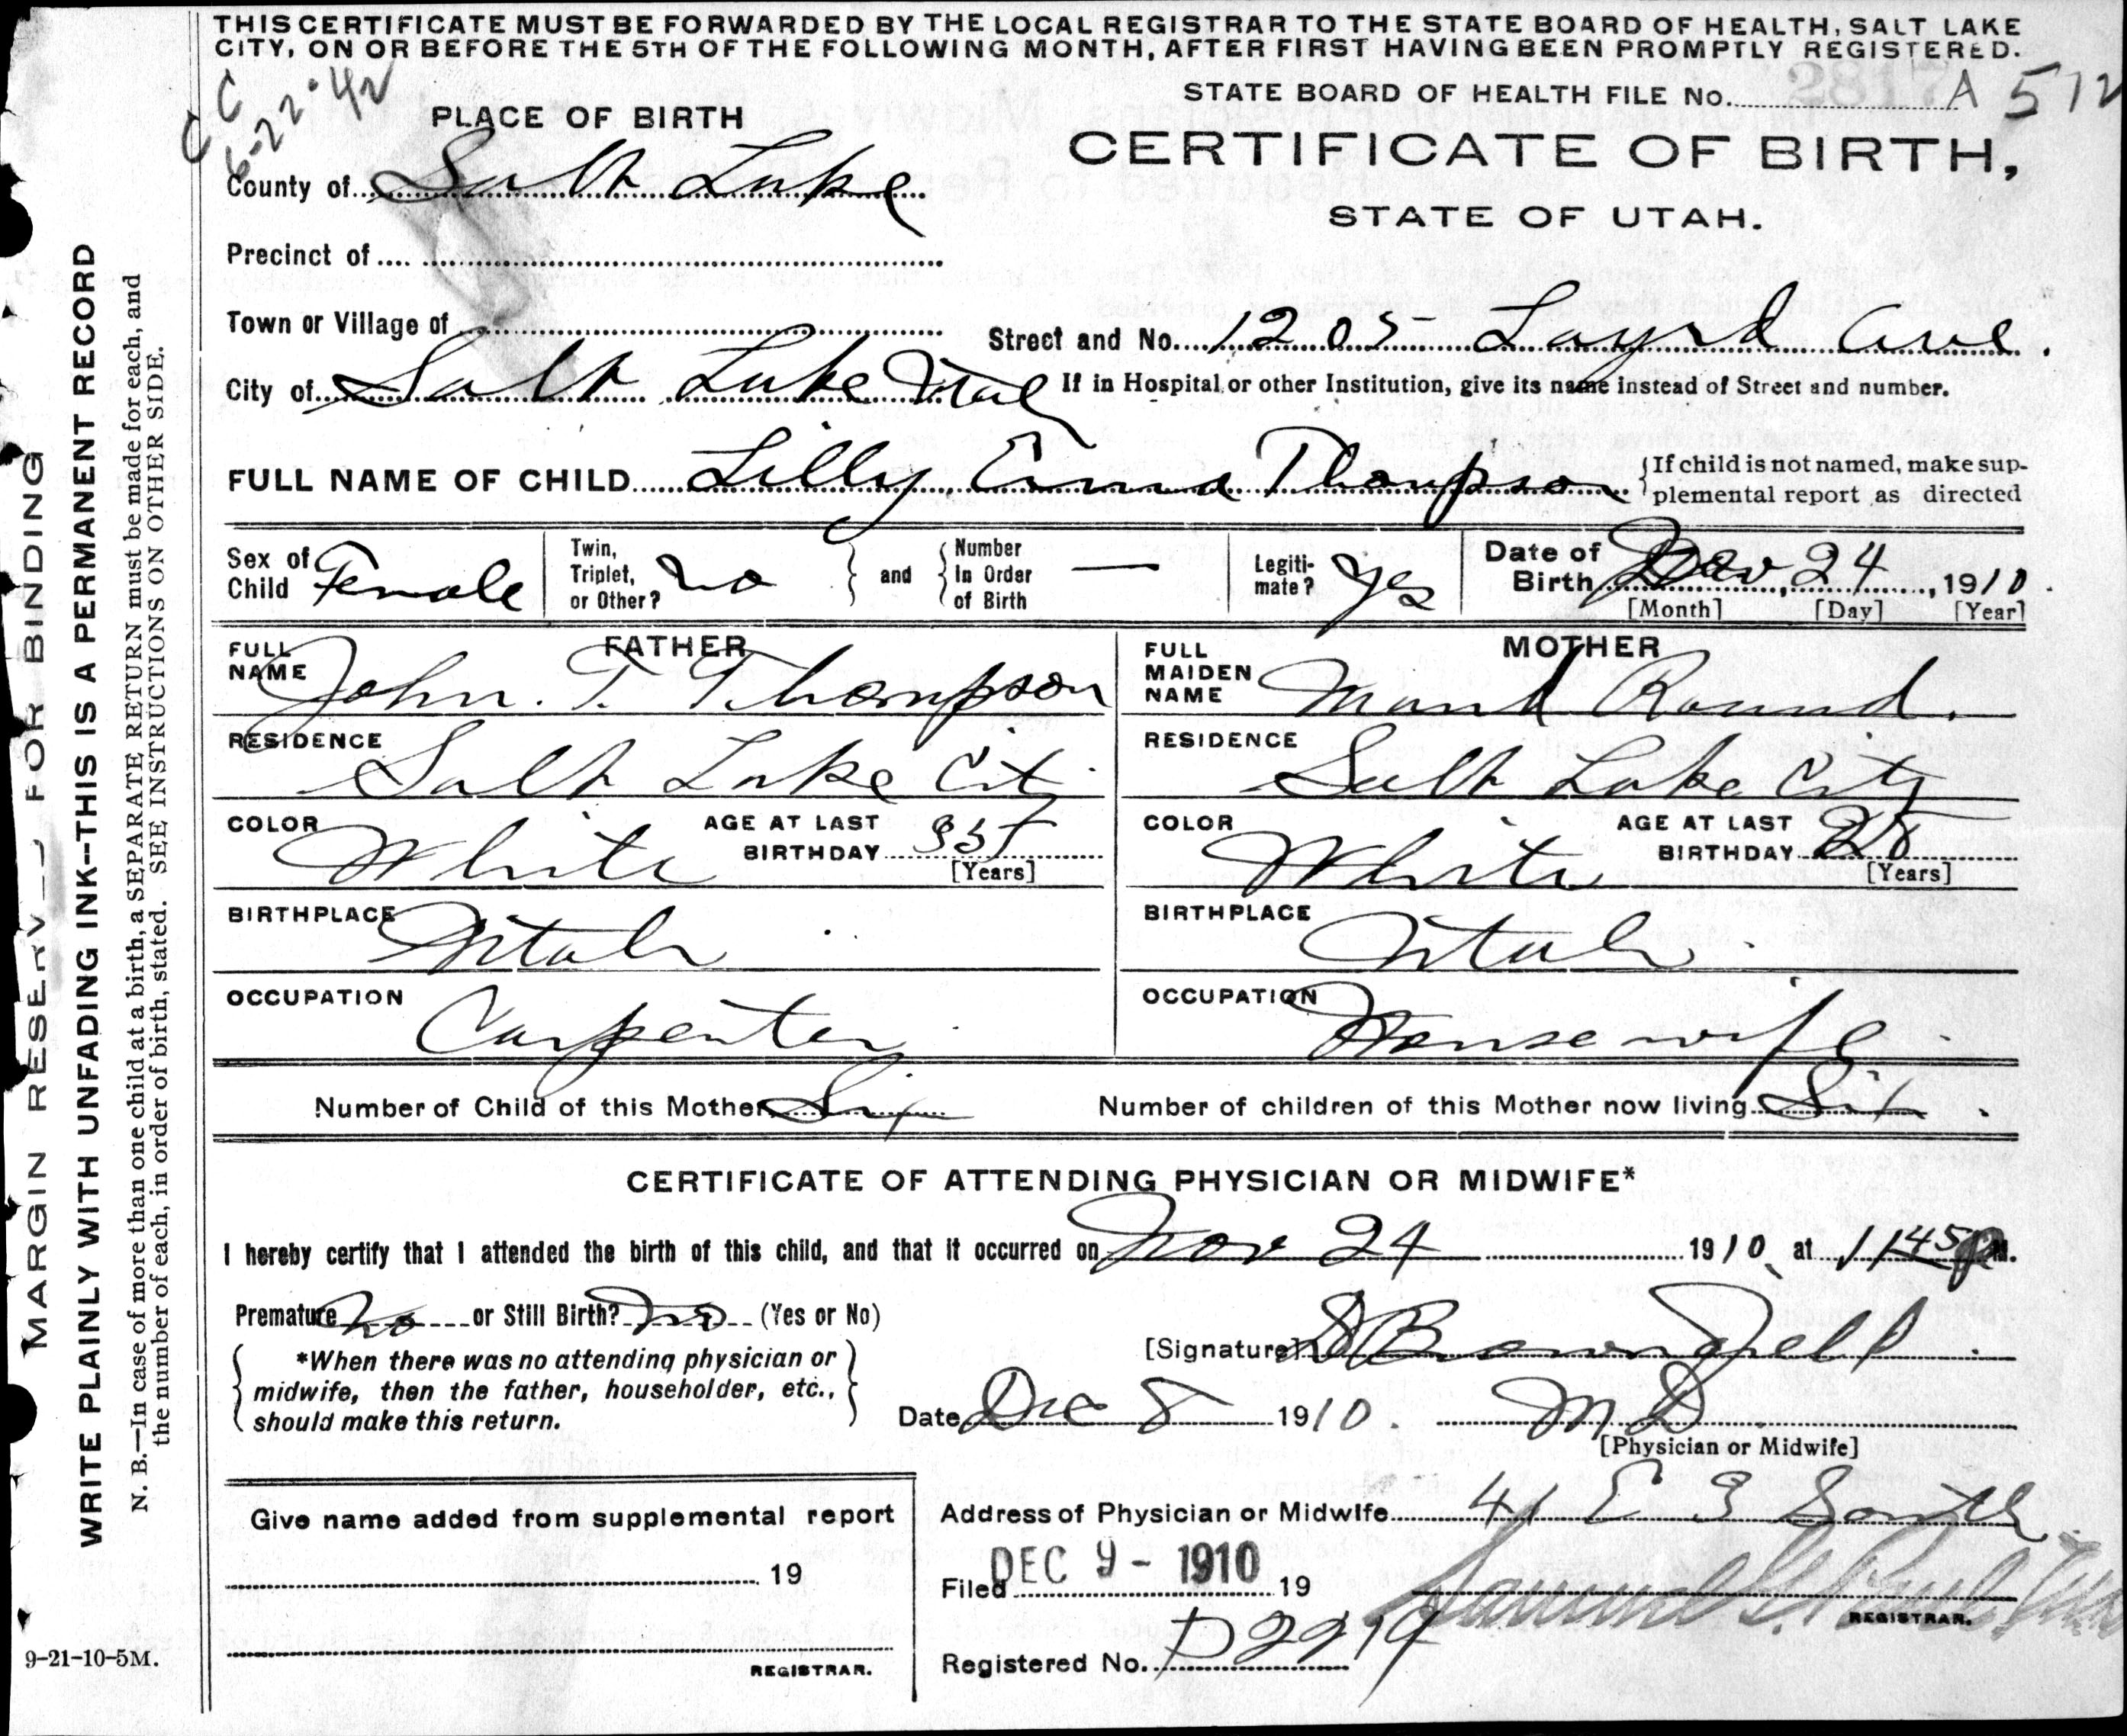 THIS CERTIFICATE MUST BE FORWARDED BY THE LOCAL REGISTRAR TO THE STATE BOARD OF HEALTH, SALT LAKE
CITY, ON OR BEFORE THE 5TH OF THE FOLLOWING MONTH, AFTER FIRST HAVING BEEN PROMPTLY REGISTERED.
CC
6-22-42
STATE BOARD OF HEALTH FILE No. A 512
PLACE OF BIRTH
CERTIFICATE OF BIRTH,
STATE OF UTAH.
County of Salt Lake
Precinct of
Town or Village of
Street and No. 1205 Layrd Ave.
City of Salt Lake
If in Hospital or other Institution, give its name instead of Street and number.
FULL NAME OF CHILD Lilly Erma Thompson
{If child is not named, make sup-
plemental report as directed
Sex of Child Female
Twin, Triplet, or Other? no
and
Number In Order of Birth —
Legiti-mate? Yes
Date of Birth Nov 24, 1910
[Month] [Day] [Year]
FATHER
FULL NAME John. T. Thompson
RESIDENCE Salt Lake City
COLOR White
AGE AT LAST BIRTHDAY 35
[Years]
BIRTHPLACE Utah
OCCUPATION Carpenter
MOTHER
FULL MAIDEN NAME Maud Round.
RESIDENCE Salt Lake City
COLOR White
AGE AT LAST BIRTHDAY 28
[Years]
BIRTHPLACE Utah
OCCUPATION Housewife
Number of Child of this Mother Six
Number of children of this Mother now living Six
CERTIFICATE OF ATTENDING PHYSICIAN OR MIDWIFE*
I hereby certify that I attended the birth of this child, and that it occurred on Nov 24 1910, at 1145 P M.
Premature no or Still Birth? no (Yes or No)
*When there was no attending physician or
midwife, then the father, householder, etc.,
should make this return.
[Signature] Brownfield
Date Dec 8 1910. M D
[Physician or Midwife]
Give name added from supplemental report
19
REGISTRAR.
Address of Physician or Midwife 41 E 3 South
Filed DEC 9 - 1910 19
REGISTRAR.
Registered No. D2219
MARGIN RESERV FOR BINDING
WRITE PLAINLY WITH UNFADING INK--THIS IS A PERMANENT RECORD
N. B.—In case of more than one child at a birth, a SEPARATE RETURN must be made for each, and
the number of each, in order of birth, stated. SEE INSTRUCTIONS ON OTHER SIDE.
9-21-10-5M.